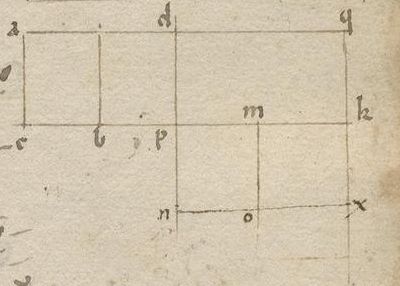 a d q
c b p m k
n o x